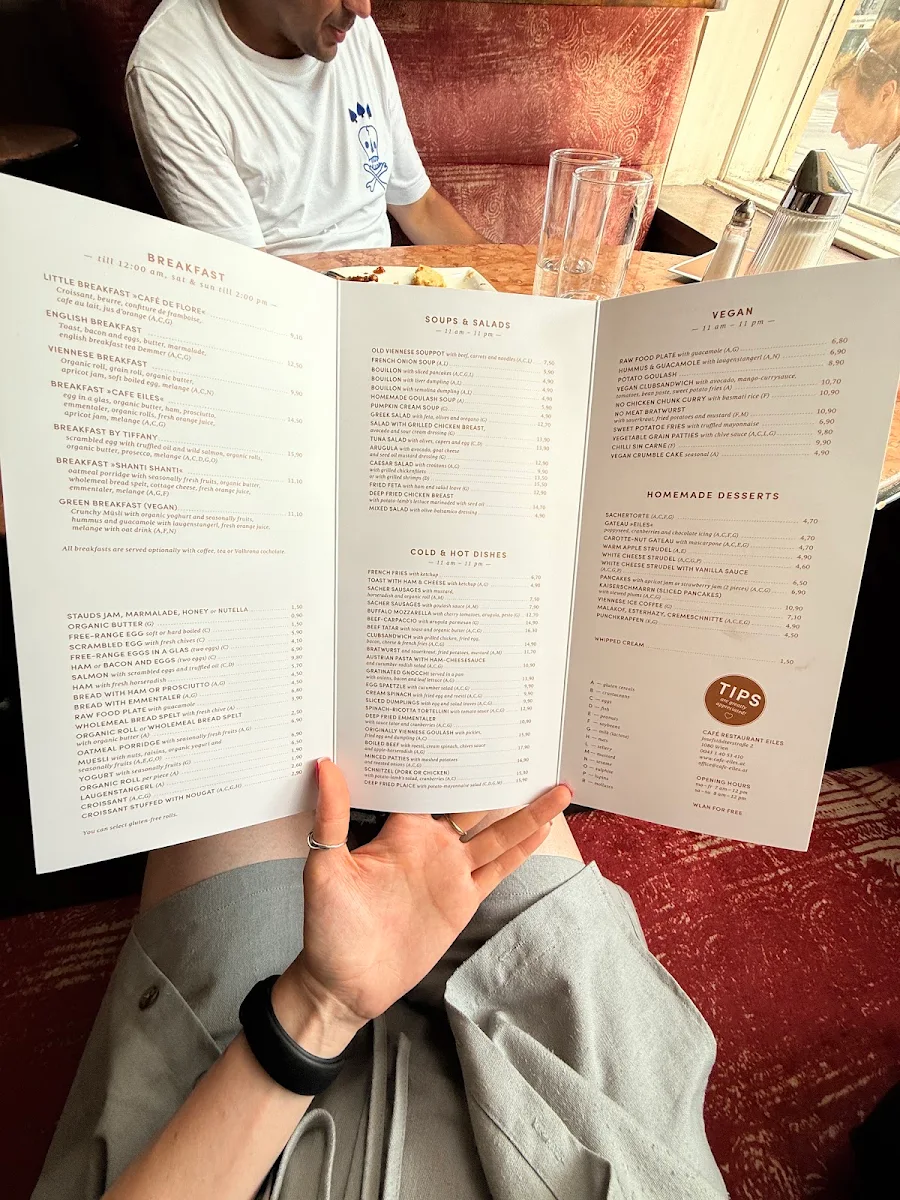 BREAKFAST
— till 12:00 am, sat & sun till 2:00 pm —
LITTLE BREAKFAST »CAFÉ DE FLORE«
Croissant, beurre, confiture de framboise,
cafe au lait, jus d'orange (A,C,G)
ENGLISH BREAKFAST 12,50
Toast, bacon and eggs, butter, marmalade,
english breakfast tea Demmer (A,C,G)
VIENNESE BREAKFAST
Organic roll, grain roll, organic butter,
apricot jam, soft boiled egg, melange (A,C,G,N)
BREAKFAST »CAFE EILES«
egg in a glass, organic butter, ham, prosciutto,
emmentaler, organic rolls, fresh orange juice,
apricot jam, melange (A,C,G)
BREAKFAST BY TIFFANY
scrambled egg with truffled oil and wild salmon, organic rolls,
organic butter, prosecco, melange (A,C,D,G,O)
BREAKFAST »SHANTI SHANTI« 11,10
oatmeal porridge with seasonally fresh fruits, organic butter,
wholemeal bread spelt, cottage cheese, fresh orange juice,
emmentaler, melange (A,G,F)
GREEN BREAKFAST (VEGAN) 11,10
Crunchy Müsli with organic yoghurt and seasonally fruits,
hummus and guacamole with laugenstangerl, fresh orange juice,
melange with oat drink (A,F,N)
All breakfasts are served optionally with coffee, tea or Valhrona cocholate.
STAUDS JAM, MARMALADE, HONEY or NUTELLA 1,50
ORGANIC BUTTER (G) 0,90
FREE-RANGE EGG soft or hard boiled (C)
SCRAMBLED EGG with fresh chives (C)
FREE-RANGE EGGS IN A GLASS (two eggs) (C)
HAM or BACON AND EGGS (two eggs) (C)
SALMON with scrambled eggs and truffled oil (C,D)
HAM with fresh horseradish
BREAD WITH HAM OR PROSCIUTTO (A,G)
BREAD WITH EMMENTALER (A,G)
RAW FOOD PLATE with guacamole
WHOLEMEAL BREAD SPELT with fresh chive (A)
ORGANIC ROLL or WHOLEMEAL BREAD SPELT
with organic butter (A)
OATMEAL PORRIDGE with seasonally fresh fruits (A,G)
MUESLI with nuts, raisins, organic yogurt and
seasonally fruits (A,E,G,O)
YOGURT with seasonally fruits (G)
ORGANIC ROLL per piece (A)
LAUGENSTANGERL (A)
CROISSANT (A,C,G)
CROISSANT STUFFED WITH NOUGAT (A,C,G,F) 2,90
You can select gluten-free rolls.
SOUPS & SALADS
— 11 am – 11 pm —
OLD VIENNESE SOUPPOT with beef, carrots and noodles (A,C,L) 7,50
FRENCH ONION SOUP (A,L)
BOUILLON with sliced pancakes (A,C,G,L) 4,90
BOUILLON with liver dumpling (A,L) 4,90
BOUILLON with semolina dumpling (A,L) 4,90
HOMEMADE GOULASH SOUP (A)
PUMPKIN CREAM SOUP (G)
GREEK SALAD with feta, olives and oregano (G)
SALAD WITH GRILLED CHICKEN BREAST,
avocado and sour cream dressing (G)
TUNA SALAD with olives, capers and egg (C,D)
ARUGULA with avocado, goat cheese
and seed oil mustard dressing (G)
CAESAR SALAD with croûtons (A,G)
with grilled chickenfilets
or with grilled shrimps (D)
FRIED FETA with ham and salad leave (G)
DEEP FRIED CHICKEN BREAST
with potato-lamb's lettuce marinaded with seed oil
MIXED SALAD with olive balsamico dressing 4,90
COLD & HOT DISHES
— 11 am – 11 pm —
FRENCH FRIES with ketchup
TOAST WITH HAM & CHEESE with ketchup (A,G)
SACHER SAUSAGES with mustard,
horseradish and organic roll (A,M)
SACHER SAUSAGES with goulash sauce (A,M)
BUFFALO MOZZARELLA with cherry tomatoes, arugula, pesto (G)
BEEF-CARPACCIO with arugula-parmesan (G)
BEEF TATAR with toast and organic butter (A,C,G)
CLUBSANDWICH with grilled chicken, fried egg,
bacon, cheese & french fries (A,C,G)
BRATWURST and sauerkraut, fried potatoes, mustard (A,M)
AUSTRIAN PASTA WITH HAM-CHEESESAUCE
and cucumber radish salad (A,C,G)
GRATINATED GNOCCHI served in a pan
with onions, bacon and leaf lettuce (A,C,G)
EGG SPAETZLE with cucumber salad (A,C,G)
CREAM SPINACH with fried egg and roesti (A,C,G)
SLICED DUMPLINGS with egg and salad leaves (A,C,G)
SPINACH-RICOTTA TORTELLINI with tomato sauce (A,C,G)
DEEP FRIED EMMENTALER
with sauce tatar and cranberries (A,C,G)
ORIGINALLY VIENNESE GOULASH with pastries,
fried egg and dumpling (A,C)
BOILED BEEF with roesti, cream spinach, chives sauce
and apple-horseradish (A,G)
MINCED PATTIES with mashed potatoes
and roasted onions (A,C,G)
SCHNITZEL (PORK OR CHICKEN)
with potato-lamb's salad, cranberries (A,C)
DEEP FRIED PLAICE with potato-mayonnaise salad
VEGAN
— 11 am – 11 pm —
RAW FOOD PLATE with guacamole (A,G) 6,80
HUMMUS & GUACAMOLE with laugenstangerl (A,N) 6,90
POTATO GOULASH 8,90
VEGAN CLUBSANDWICH with avocado, mango-currysauce,
tomatoes, bean paste, sweet potato fries (A) 10,70
NO CHICKEN CHUNK CURRY with basmati rice (F) 10,90
NO MEAT BRATWURST
with sauerkraut, fried potatoes and mustard (F,M) 10,90
SWEET POTATOE FRIES with truffled mayonnaise 6,90
VEGETABLE GRAIN PATTIES with chive sauce (A,C,L,G) 9,80
CHILLI SIN CARNE (F) 9,90
VEGAN CRUMBLE CAKE seasonal (A) 4,90
HOMEMADE DESSERTS
SACHERTORTE (A,C,F,G) 4,70
GATEAU »EILES«
poppyseed, cranberries and chocolate icing (A,C,F,G) 4,70
CAROTTE-NUT GATEAU with mascarpone (A,C,E,G) 4,70
WARM APPLE STRUDEL (A,E) 4,90
WHITE CHEESE STRUDEL (A,C,G,P) 4,60
WHITE CHEESE STRUDEL WITH VANILLA SAUCE
(A,C,G,P) 6,50
PANCAKES with apricot jam or strawberry jam (2 pieces) (A,C,G) 6,90
KAISERSCHMARRN (SLICED PANCAKES)
with stewed plums (A,C,G) 10,90
VIENNESE ICE COFFEE (G) 7,10
MALAKOF, ESTERHAZY, CREMESCHNITTE (A,C,E,G) 4,90
PUNCHKRAPFEN (A,G) 4,50
WHIPPED CREAM 1,50
A — gluten cereals
B — crustaceans
C — eggs
D — fish
E — peanuts
F — soybeans
G — milk (lactose)
H — nuts
L — celery
M — mustard
N — sesame
O — sulphite
P — lupins
R — molluscs
TIPS
are greatly
appreciated!
CAFÉ RESTAURANT EILES
Josefstädterstraße 2
1080 Wien
0043 1 40 53 410
www.cafe-eiles.at
office@cafe-eiles.at
OPENING HOURS
mo–fr 7 am – 11 pm
sa–so 8 am – 11 pm
WLAN FOR FREE